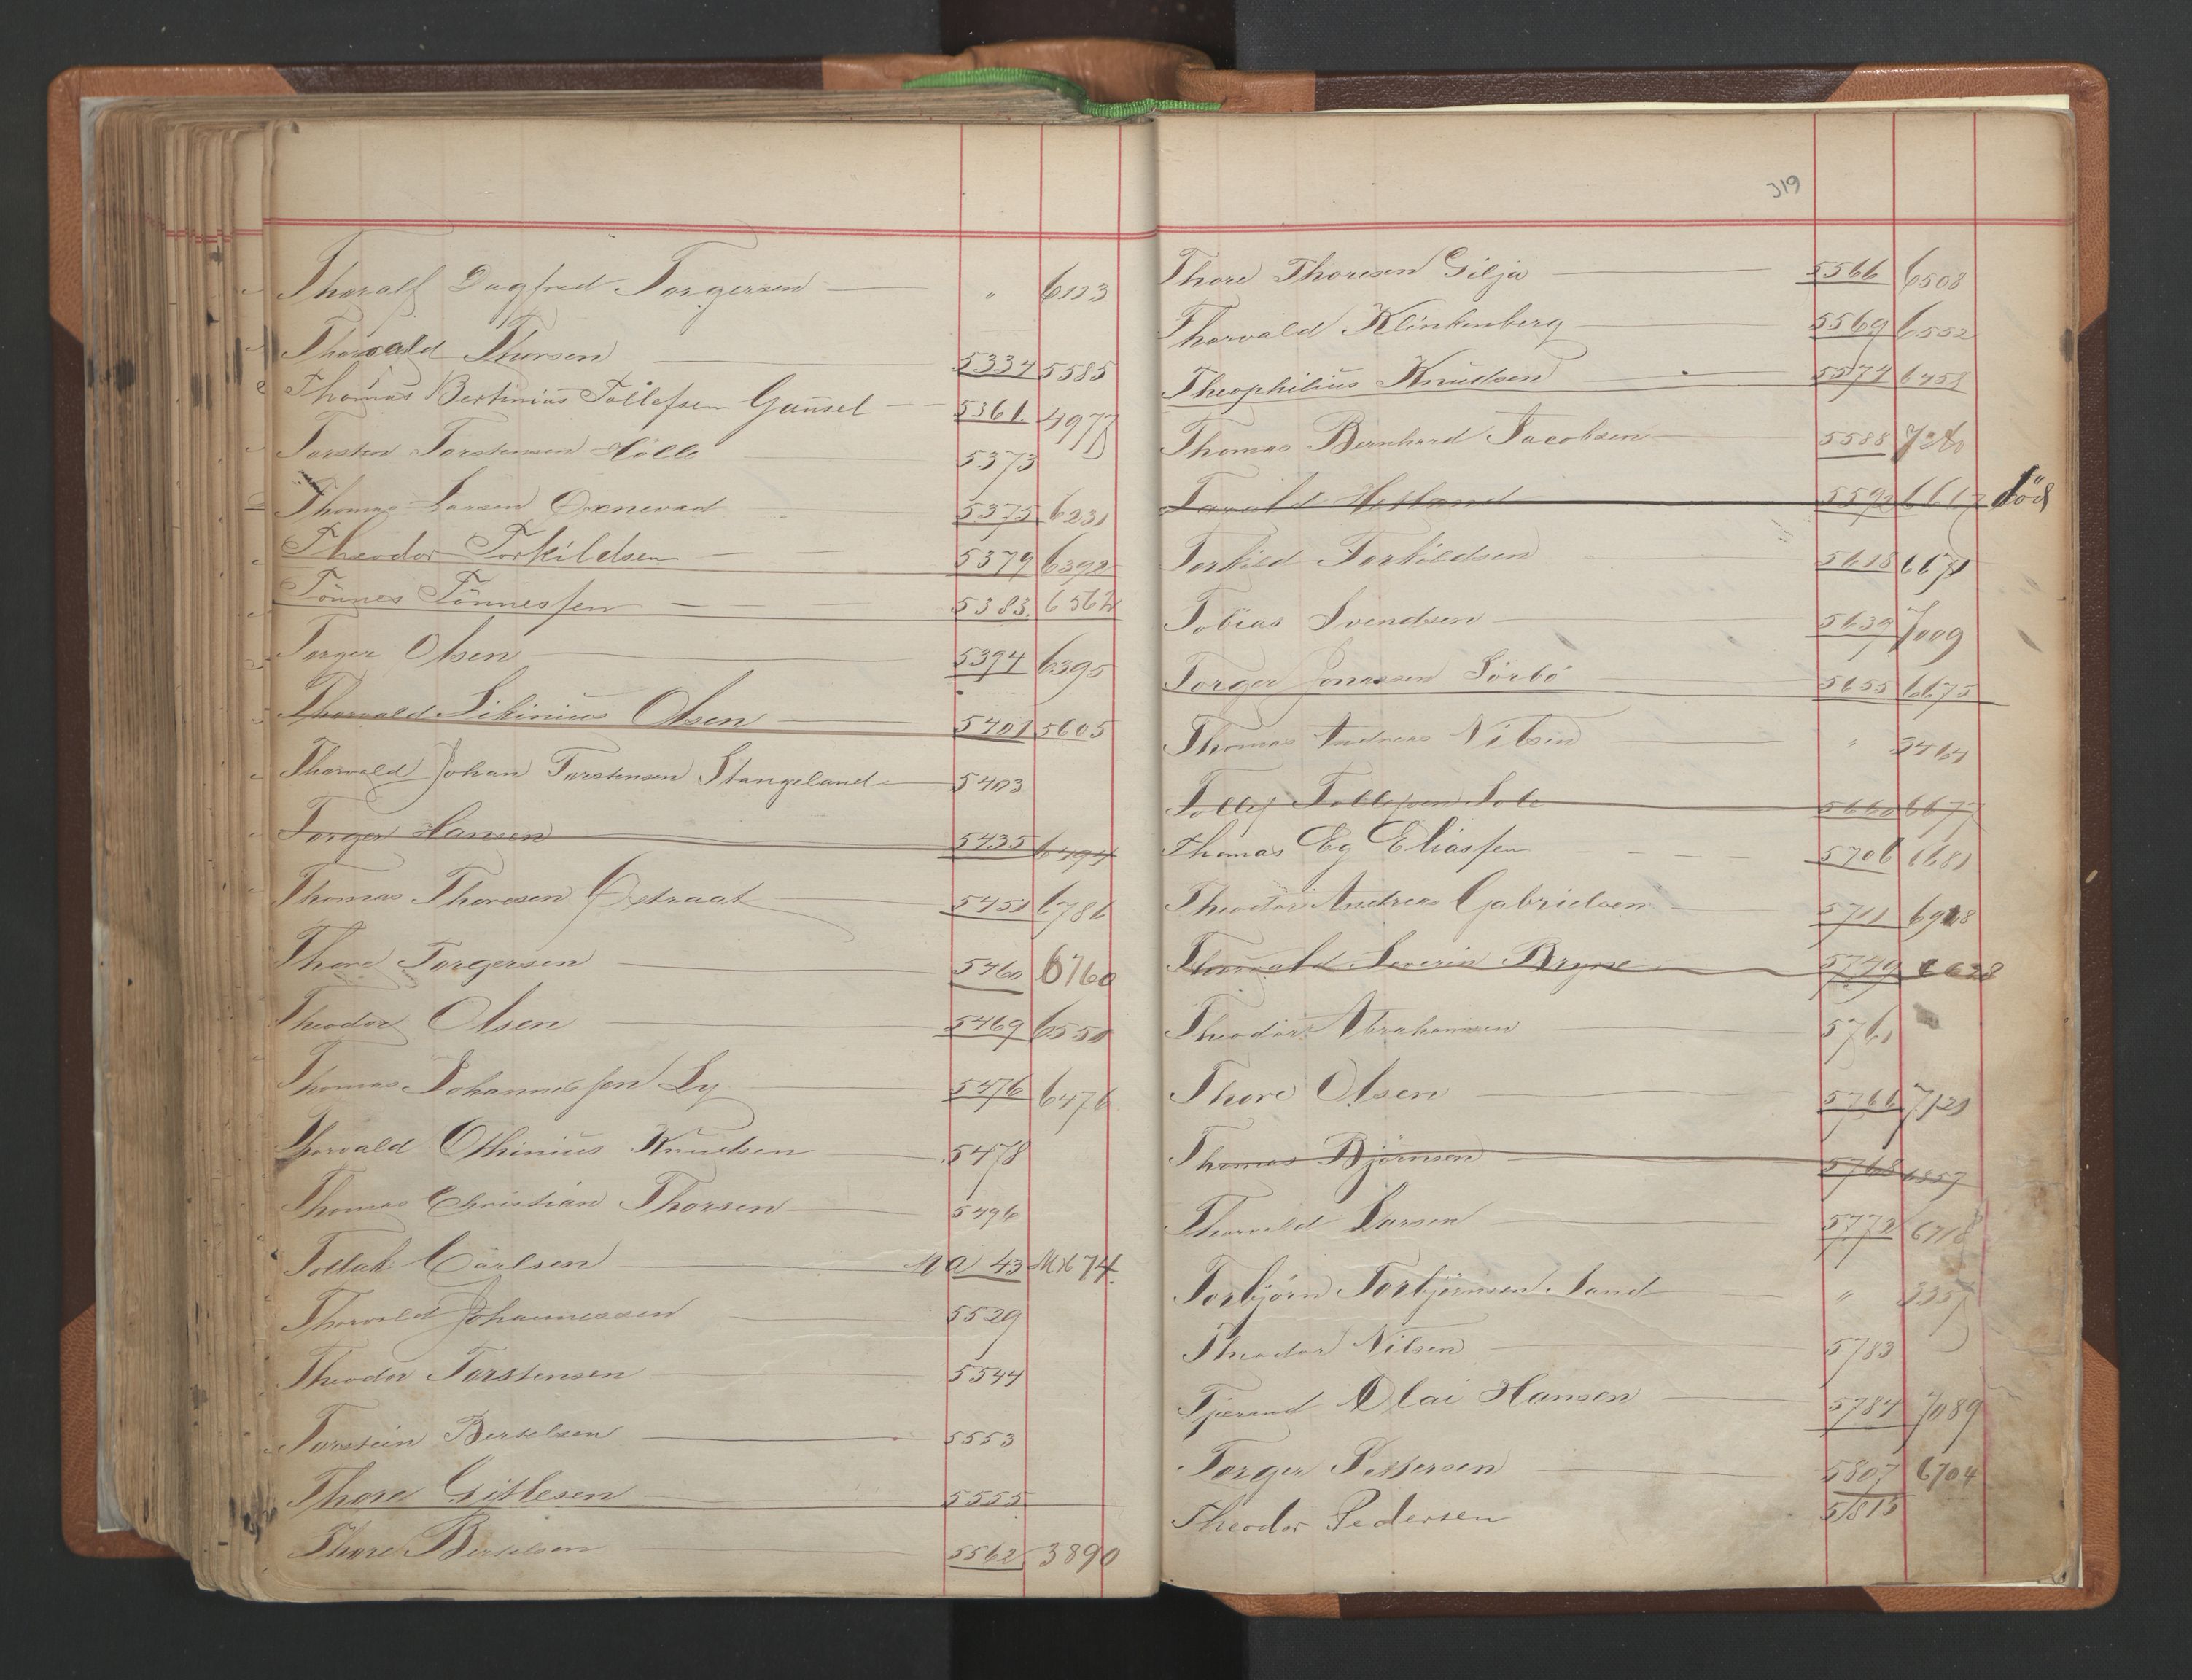 Thoralf Dagfred Torgersen — " 6113
Thorvald Thorsen — 5334 5585
Thomas Bertinius Tollefsen Gausel — 5361 4977
Torsten Torstensen Hölle — 5373
Thomas Larsen Oxnevad 5375 6231
Theodor Torkildsen — 5379 6392
Tönnes Tönnessen — — 5383 6562
Torger Olsen — 5394 6395
Thorvald Sikinius Olsen — 5401 5605
Thorvald Johan Torstensen Stangeland — 5403
Torger Hansen — 5435 6494
Thomas Thoresen Östraat — 5451 6786
Thore Torgersen — 5460 6760
Theodor Olsen — 5469 6550
Thomas Johannessen Ly — 5476 6476
Thorvald Othinius Knudsen — 5478
Thomas Christian Thorsen — 5496
Tollak Carlsen — 43 674
Thorvald Johannessen — 5529
Theodor Torstensen — 5544
Torstein Bertelsen — 5553
Thore Gitlesen — 5555
Thore Bertelsen — 5562 3890
319
Thore Thoresen Gilja — 5566 6508
Thorvald Klinkenberg — 5569 6552
Theophilius Knudsen — 5574 6458
Thomas Bernhard Jacobsen — 5588
Tarald Hetland — 5592 6617 död
Torkild Torkildsen 5618 6671
Tobias Svendsen — 5639 7009
Torger Jonassen Sörbö 5655 6675
Thomas Andreas Nilsen — "
Tollef Tollefsen Sole — 5660 6677
Thomas Eg Eliassen — — — 5706 6681
Theodor Andreas Gabrielsen — 5711 6918
Thorvald Severin Bryne — 5749 6628
Theodor Abrahamsen — 5761
Thore Olsen — 5766 7121
Thomas Björnsen — 5768 6857
Thorvald Larsen — 5772 6718
Torbjörn Torbjörnsen Sand — "
Theodor Nilsen — 5783
Tjerand Olai Hansen — 5784 7089
Torger Pettersen — 5807 6704
Theodor Pedersen 5815